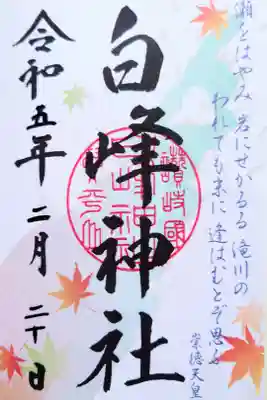 瀬をはやみ 岩にせかるる 滝川の
われても末に 逢はむとぞ思ふ
崇徳天皇
白峰神社
讃岐國
令和五年 二月 二十日